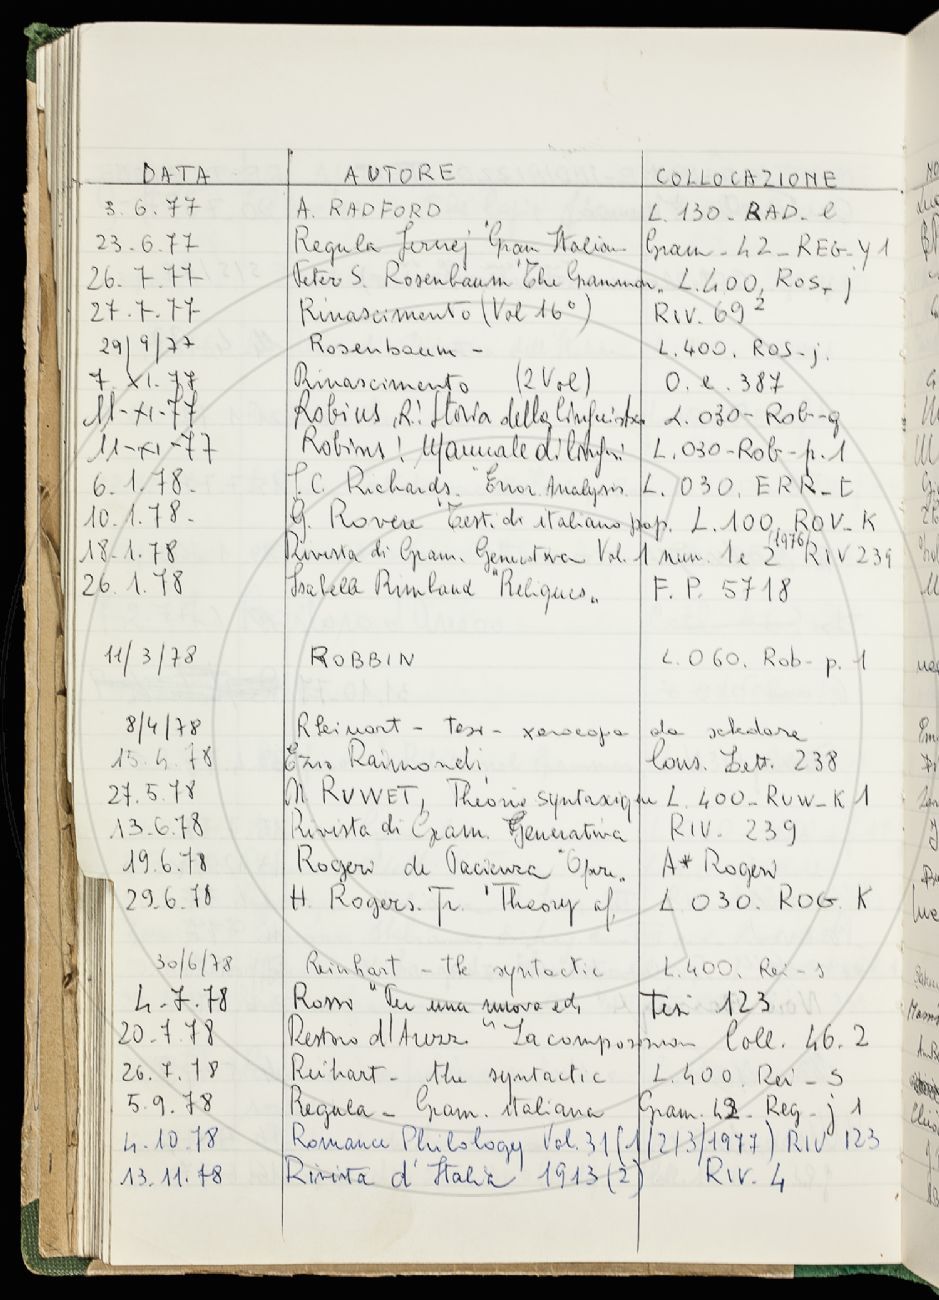 DATA AUTORE COLLOCAZIONE
3.6.77 A. RADFORD L. 130. RAD. l
23.6.77 Regula Jernej "Gram Italian Gram. 42 - REG - y 1
26.7.77 Peter S. Rosenbaum The Grammar. L.400, Ros. j
27.7.77 Rinascimento (Vol 16°) RIV. 69²
29/9/77 Rosenbaum - L.400. Ros - j.
7. XI. 77 Rinascimento (2 Vol) O. e. 387
11-XI-77 Robins, R. Storia della linguistica L.030 - Rob - q
11-XI-77 Robins: Manuale di L.030 - Rob - p. 1
6.1.78. Richards. "Error Analysis L. 030. ERR - E
10.1.78. G. Rovere "Test. di italiano pop. L. 100, ROV - K
18.1.78 Rivista di Gram. Generativa Vol. 1 num. 1 e 2 (1976) RIV 239
26.1.78 Isabella Rimbaud "Reliques" F. P. 5718
11/3/78 ROBBIN L. 060. Rob - p. 1
8/4/78 Rheinart - tesi - xerocopa da schedare
15.4.78 Ezio Raimondi Cons. Lett. 238
27.5.78 N. RUWET, Théorie syntaxique L. 400 - RUW - K 1
13.6.78 Rivista di Gram. Generativa RIV. 239
19.6.78 Rogeri de Pacienza "Opere" A* Rogeri
29.6.78 H. Rogers. Jr. "Theory of, L 030. ROG. K
30/6/78 Reinhart - the syntactic L.400. Rei - s
4.7.78 Rossi "Per una nuova ed. Tesi 123
20.7.78 Restoro d'Arezzo "La composizione Coll. 46.2
26.7.78 Reihart - the syntactic L.400. Rei - s
5.9.78 Regula - Gram. italiana Gram. 42 - Reg - j 1
4.10.78 Romance Philology Vol. 31 (1/2/3/1977) RIV 123
13.11.78 Rivista d'Italia 1913 (2) RIV. 4